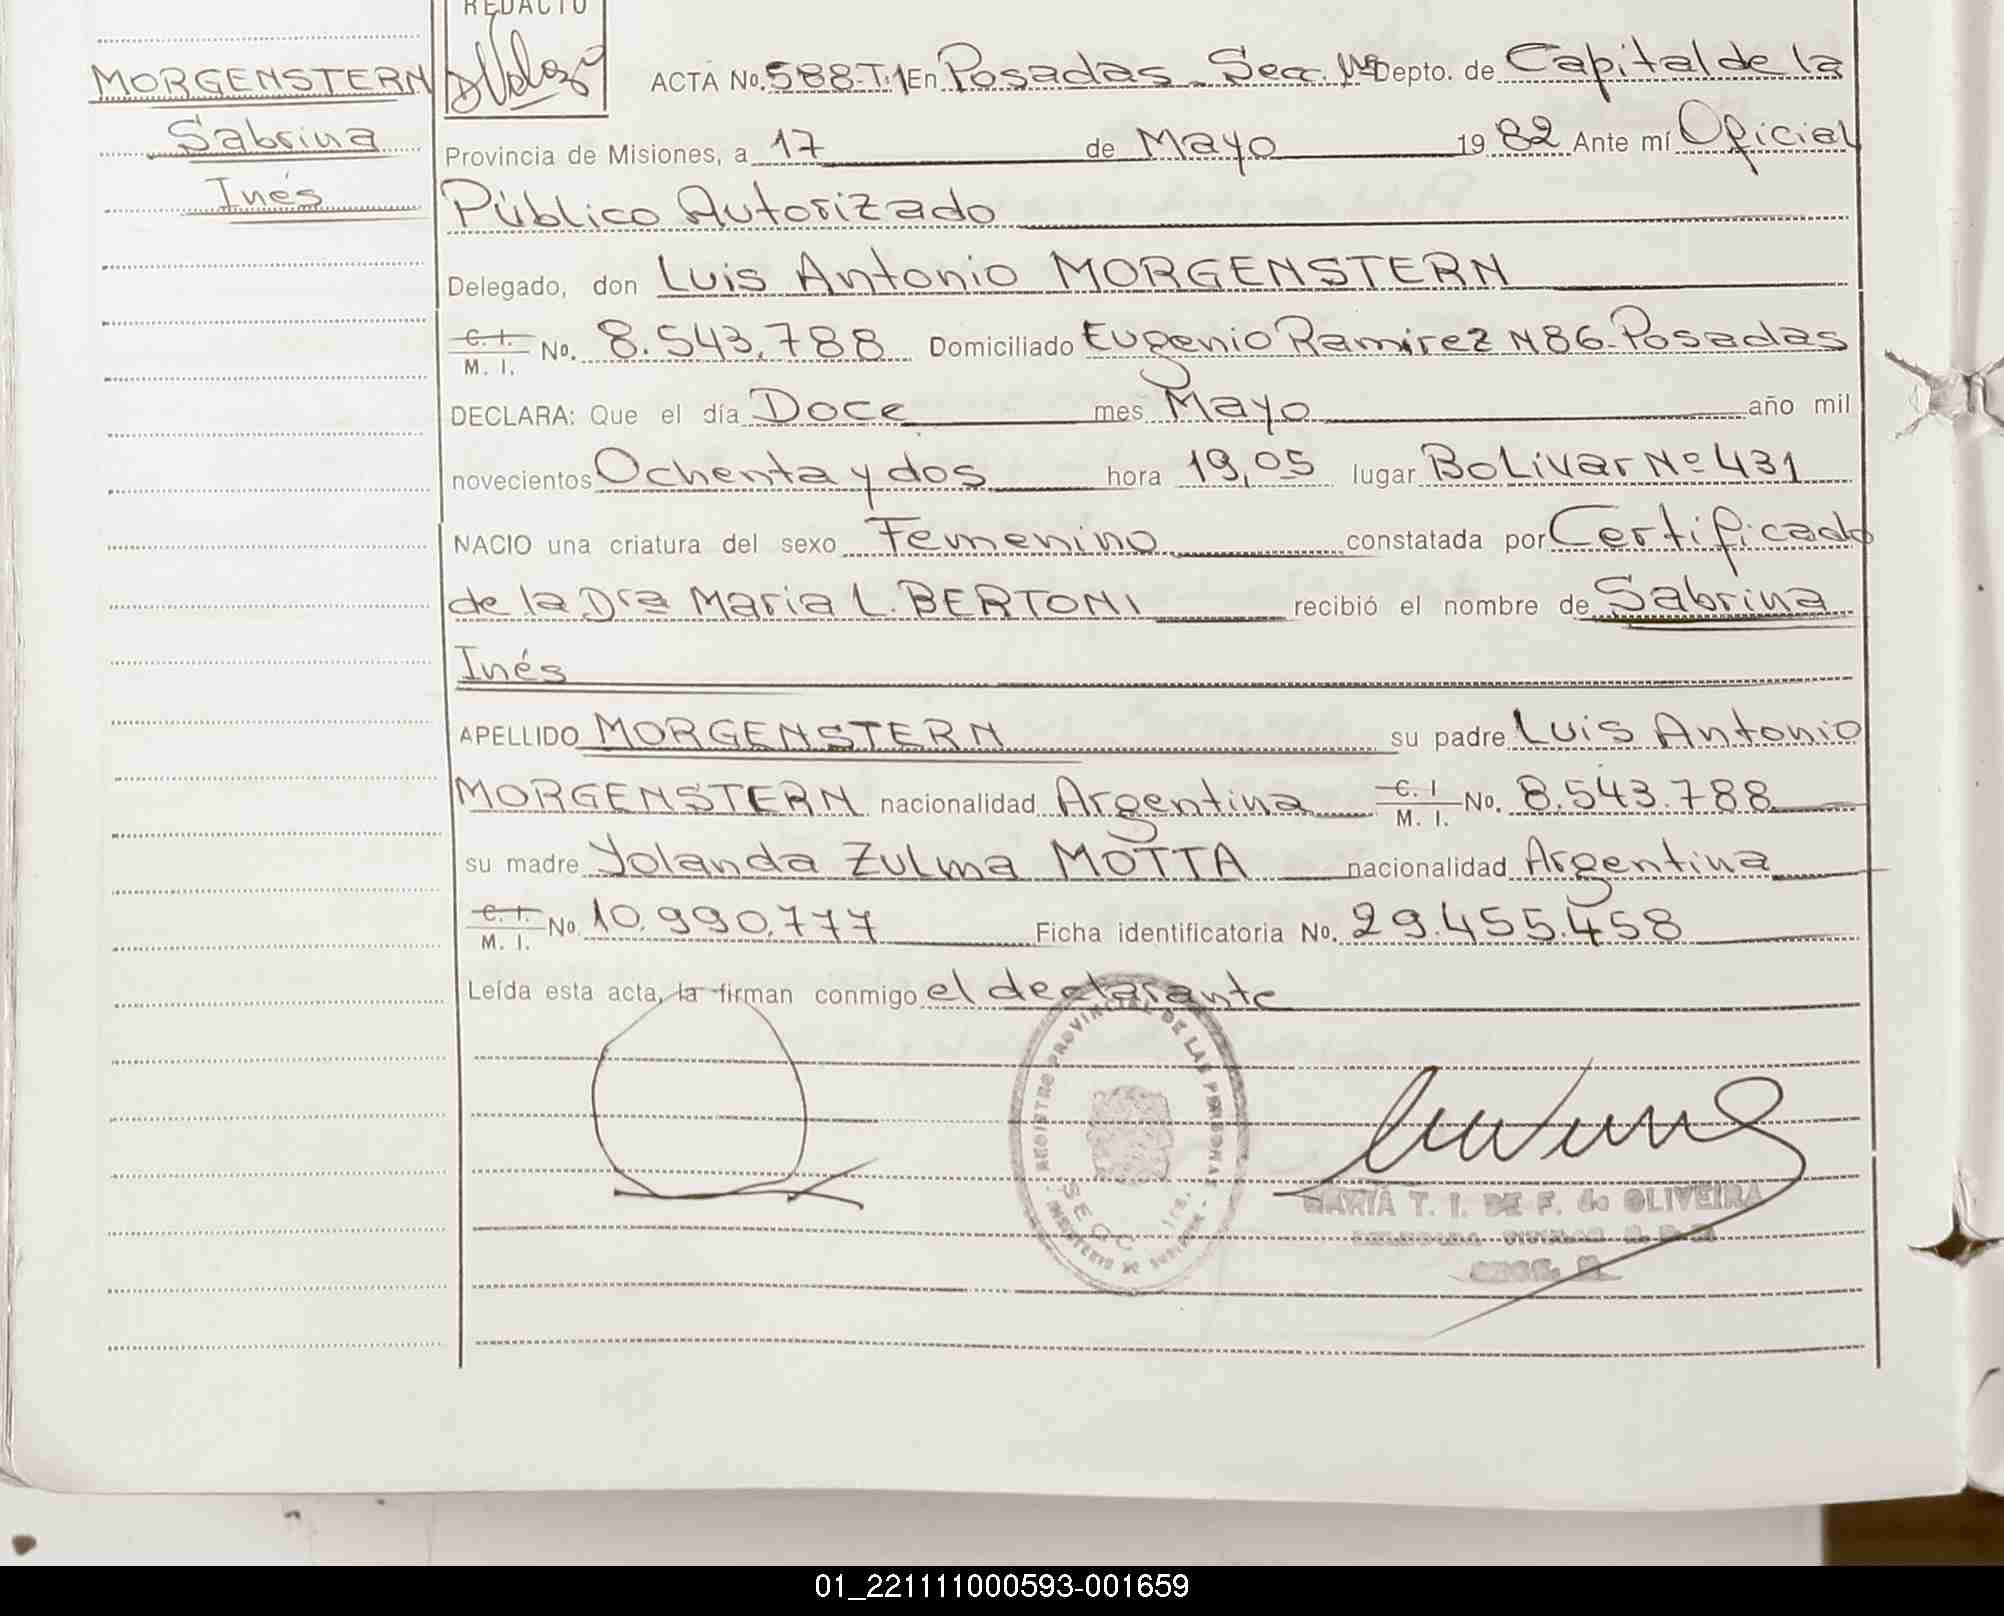 REDACTO
MORGENSTERN
Sabrina
Inés
ACTA No. 588-T.1 En Posadas Secc. 1ra Depto. de Capital de la
Provincia de Misiones, a 17 de Mayo 1982 Ante mí Oficial
Público Autorizado
Delegado, don Luis Antonio MORGENSTERN
C. I.
M. I. No. 8.543.788 Domiciliado Eugenio Ramirez N86-Posadas
DECLARA: Que el día Doce mes Mayo año mil
novecientos Ochenta y dos hora 19,05 lugar BoLivar Nº 431
NACIO una criatura del sexo Femenino constatada por Certificado
de la Dra Maria L. BERTONI recibió el nombre de Sabrina
Inés
APELLIDO MORGENSTERN su padre Luis Antonio
MORGENSTERN nacionalidad Argentina C. I
M. I. No. 8.543.788
su madre Yolanda Zulma MOTTA nacionalidad Argentina
C. I.
M. I. No. 10.990.777 Ficha identificatoria No. 29.455.458
Leída esta acta, la firman conmigo el declarante
REGISTRO PROVINCIAL DE LAS PERSONAS
SECC. 1ra.
MINISTERIO DE
MARIA T. I. DE F. de OLIVEIRA
01_221111000593-001659